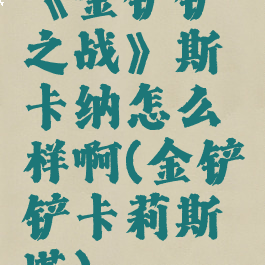 《金铲铲
之战》斯
卡纳怎么
样啊(金铲
铲卡莉斯